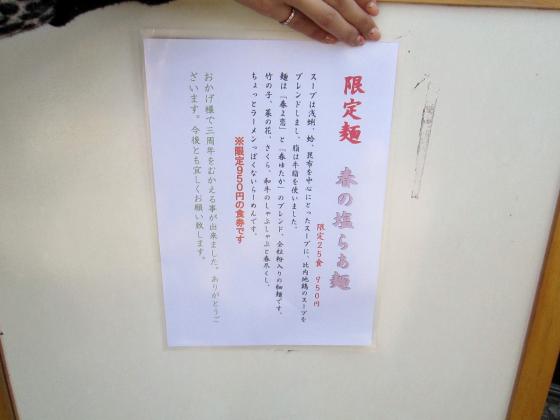 限定麺　春の塩らぁ麺
限定25食　950円
スープは浅蜊、蛤、昆布を中心にとったスープに、比内地鶏のスープを
ブレンドしまし、脂は牛脂を使いました。
麺は「春よ恋」と「春ゆたか」のブレンド、全粒粉入りの細麺です。
竹の子、菜の花、さくら、和牛のしゃぶしゃぶと春尽くし、
ちょっとラーメンっぽくないらーめんです。
※限定950円の食券です
おかげ様で三周年をむかえる事が出来ました。ありがとうご
ざいます。今後とも宜しくお願い致します。